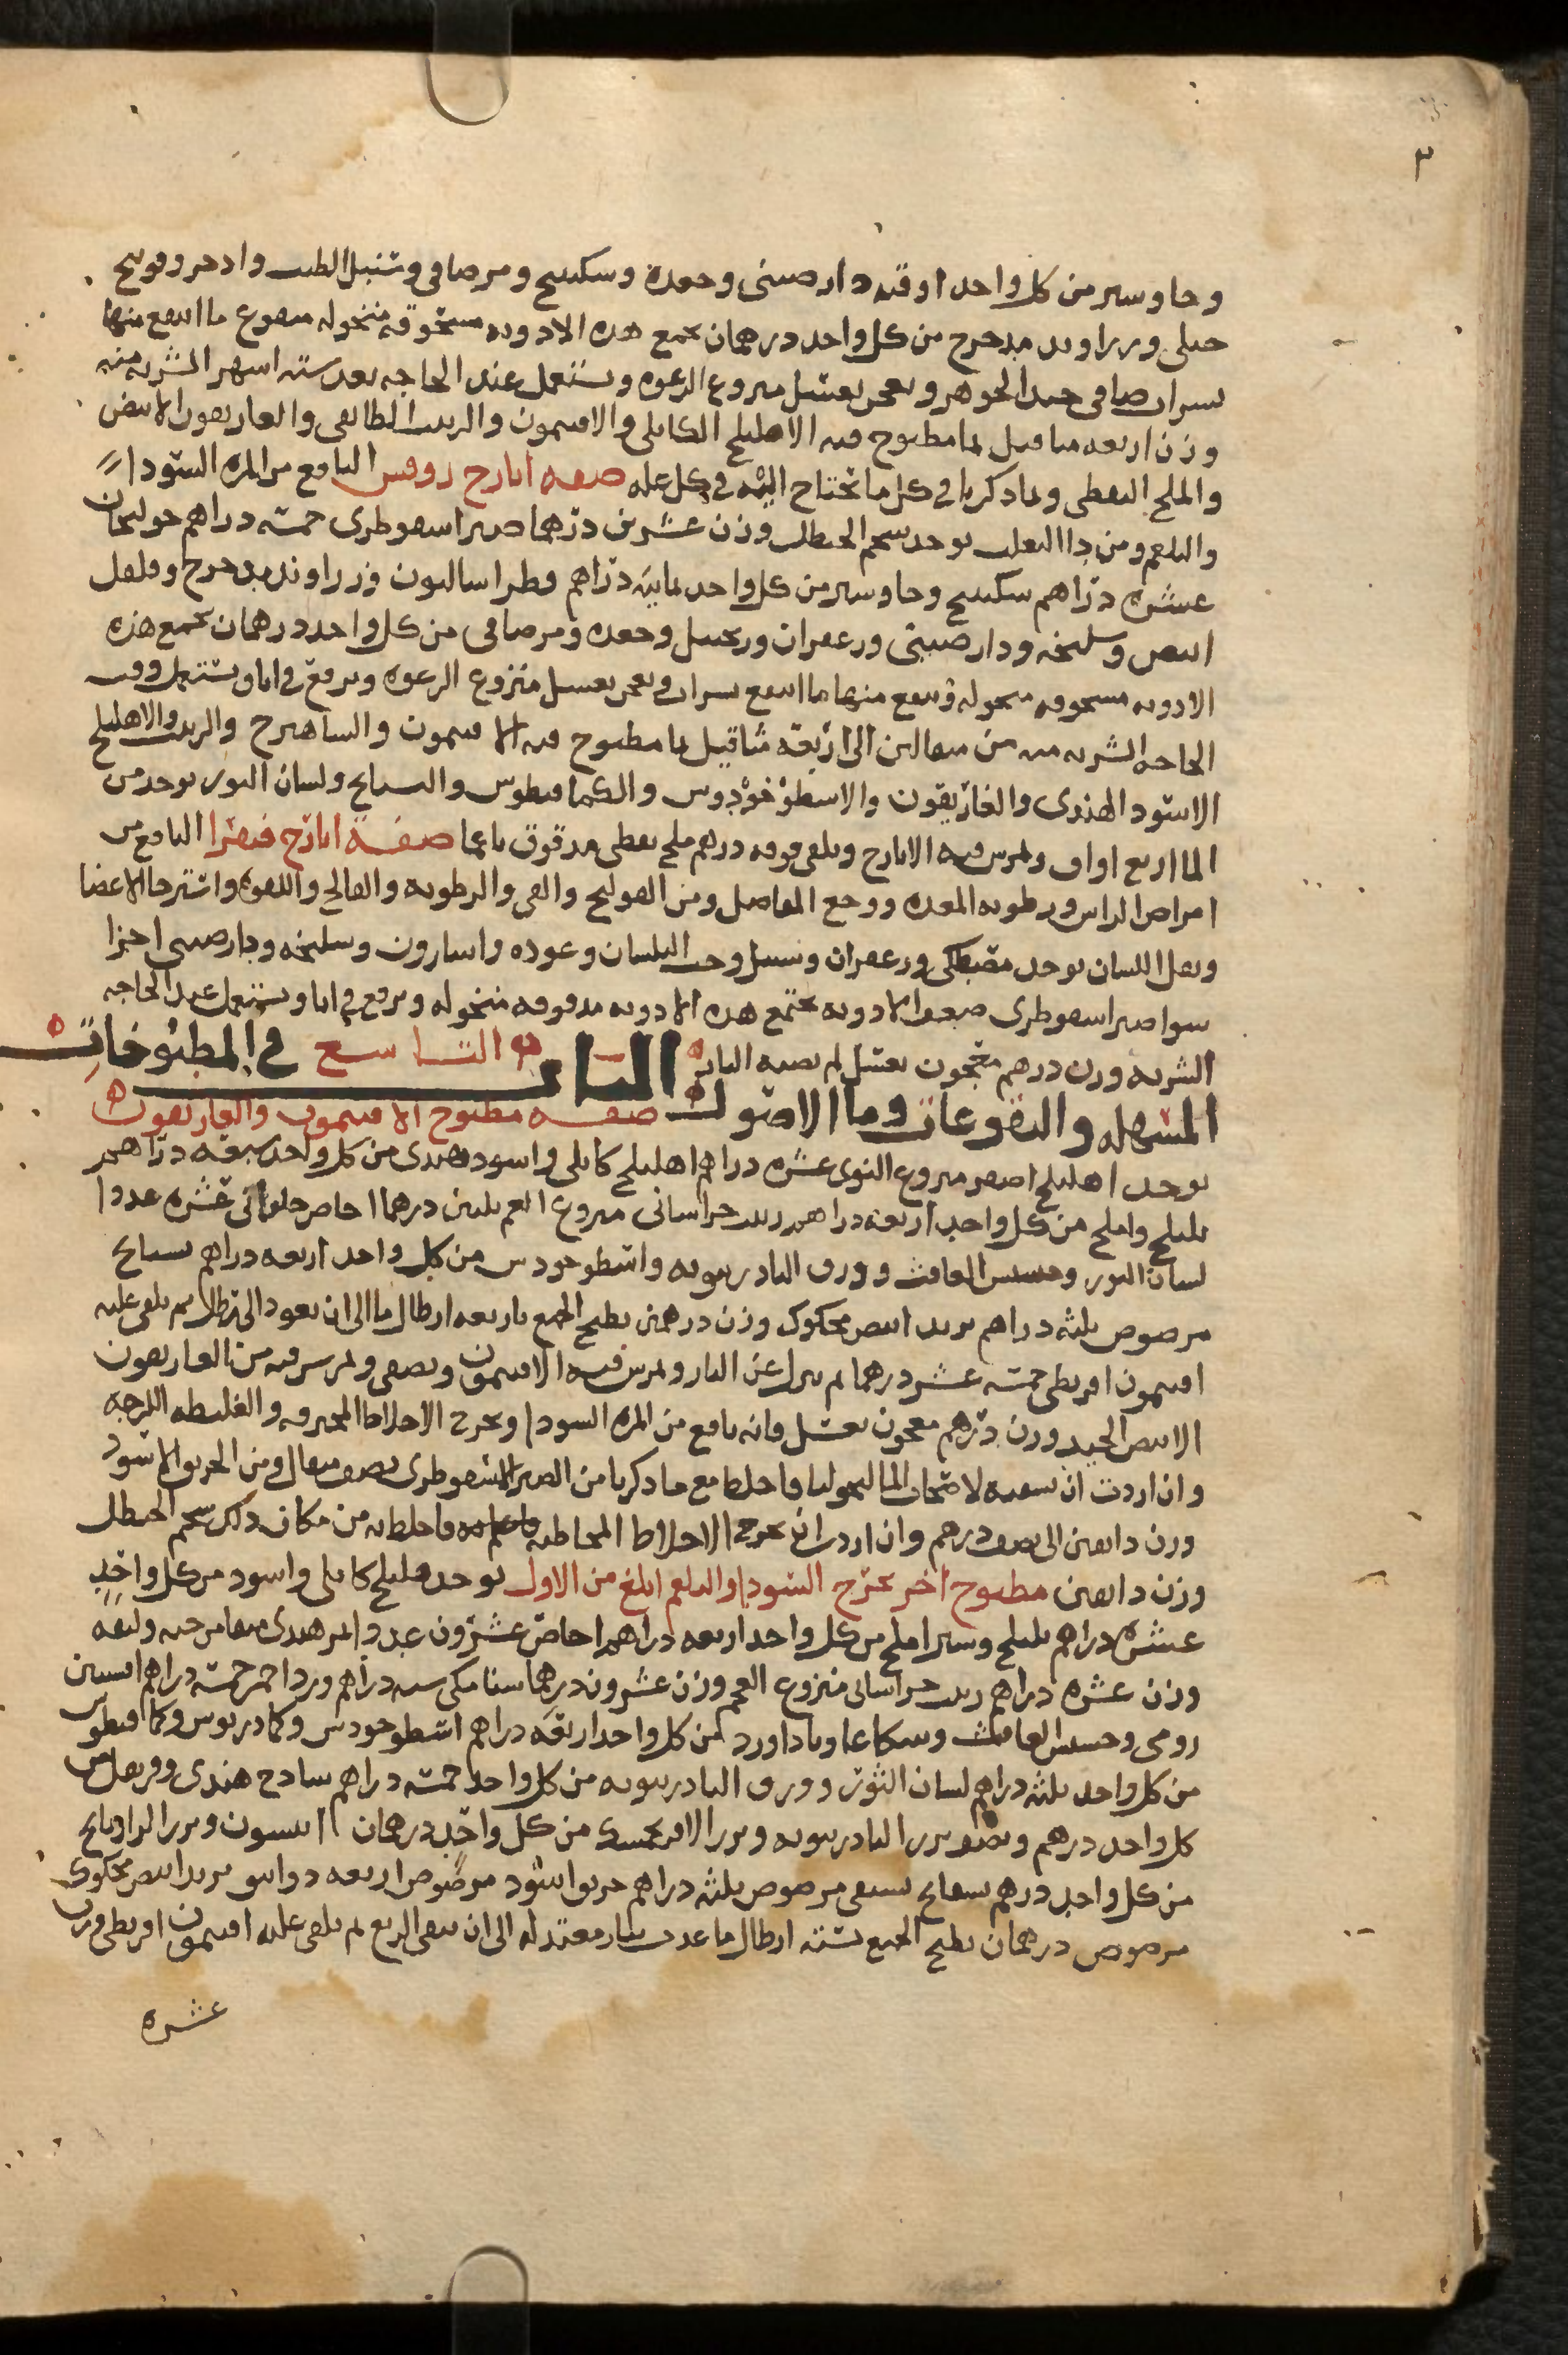 ٣
وجاوسير من كل واحد اوقيه دار صينى وجعده وسكبينج ومر صافى وسنبل الطيب واذخر وفوتنج
جبلى وزراوند مدحرج من كل واحد درهمان تجمع هذه الادويه مسحوقه منخوله منقوع ما انتقع منها
بشراب صافى جيد الجوهر ويعجن بعسل منزوع الرغوه ويستعمل عند الحاجه بعد سته اشهر الشربه منه
وزن اربعه مثاقيل بما مطبوخ فيه الاهليلج الكابلى والافتيمون والزبيب الطايفى والغاريقون الابيض
والملح النفطى وبما ذكرنا فى كل ما تحتاج اليه فى كل عله صفه ايارج روفس النافع من المره السودا
والبلغم ومن دا الثعلب يوخذ شحم الحنظل وزن عشرين درهما صبر اسقوطرى خمسه دراهم خولنجان
عشره دراهم سكبينج وجاوسير من كل واحد ثمانيه دراهم فطراساليون وزراوند مدحرج وفلفل
ابيض وسليخه ودار صينى وزعفران وزنجبيل وجعده ومر صافى من كل واحد درهمان تجمع هذه
الادويه مسحوقه منخوله وينقع منها ما انتقع بشراب ويعجن بعسل منزوع الرغوه ويرفع فى انا ويستعمل وقت
الحاجه الشربه منه من مثقالين الى اربعه مثاقيل بما مطبوخ فيه الافتيمون والساهترج والزبيب والاهليلج
الاسود الهندى والغاريقون والاسطوخودوس والكمافيطوس والبسبايج ولسان الثور يوخذ من
الما اربع اواق ويمرس فيه الايارج ويلقى فوقه درهم ملح نفطى مدقوق ناعما صفه ايارج فيقرا النافع من
امراض الراس ورطوبه المعده ووجع المفاصل ومن القولنج والقى والرطوبه والفالج واللقوه واسترخا الاعضا
وثقل اللسان يوخذ مصطكى وزعفران وسنبل وحب البلسان وعوده واسارون وسليخه ودارصينى اجزا
سوا صبر اسقوطرى ضعف الادويه تجتمع هذه الادويه مدقوقه منخوله ويرفع فى انا ويستعمل عند الحاجه
الشربه وزن درهم معجون بعسل لم تصبه النار الباب التاسع فى المطبوخات
المسهله والنقوعات وما الاصول صفه مطبوخ الافتيمون والغاريقون
يوخذ اهليلج اصفر منزوع النوى عشره دراهم اهليلج كابلى واسود هندى من كل واحد سبعه دراهم
بليلج واملج من كل واحد اربعه دراهم زبيب خراسانى منزوع العجم ثلثين درهما اجاص حلو اثنى عشره عددا
لسان الثور وحشيش الغافث وورق البادرنبويه واسطوخودس من كل واحد اربعه دراهم بسبايج
مرضوض ثلثه دراهم تربد ابيض محكوك وزن درهمين يطبخ الجميع باربعه ارطال ما الى ان يعود الى رطل ثم يلقى عليه
افتيمون اقريطى خمسه عشر درهما ثم ينزل عن النار ويمرس فيه الافتيمون ويصفى ويمرس فيه من الغاريقون
الابيض الجيد وزن درهم معجون بعسل فانه نافع من المره السودا ويخرج الاخلاط المحترقه والغليظه اللزجه
وان اردت ان تسقيه لاصحاب المالنخوليا فاخلط مع ما ذكرنا من الصبر الاسقوطرى نصف مثقال ومن الخربق الاسود
وزن دانقين الى نصف درهم وان اردت ان تخرج الاخلاط المخاطيه فاخلط به من مكان ذلك شحم الحنظل
وزن دانقين مطبوخ اخر يخرج السودا والبلغم ابلغ من الاول يوخذ هليلج كابلى واسود من كل واحد
عشره دراهم بليلج وشير املج من كل واحد اربعه دراهم اجاص عشرون عددا تمر هندى منقا من حبه وليفه
وزن عشره دراهم زبيب خراسانى منزوع العجم وزن عشرون درهما سنا مكى سته دراهم ورد احمر خمسه دراهم افسنتين
رومى وحشيش الغافث وشكاعا وباداورد من كل واحد اربعه دراهم اسطوخودس وكمادريوس وكمافيطوس
من كل واحد ثلثه دراهم لسان الثور وورق البادرنبويه من كل واحد خمسه دراهم سادج هندى وقرنفل من
كل واحد درهم ونصف بزر البادرنبويه وبزر الافرنجمشك من كل واحد درهمان انيسون وبزر الرازيانج
من كل واحد درهم بسفايج فستقى مرضوض ثلثه دراهم خربق اسود مرضوض اربعه دوانيق تربد ابيض محكوك
مرضوض درهمان يطبخ الجميع بسته ارطال ما عذب بنار معتدله الى ان يبقى الربع ثم يلقى عليه افتيمون اقريطى وزن
عشره